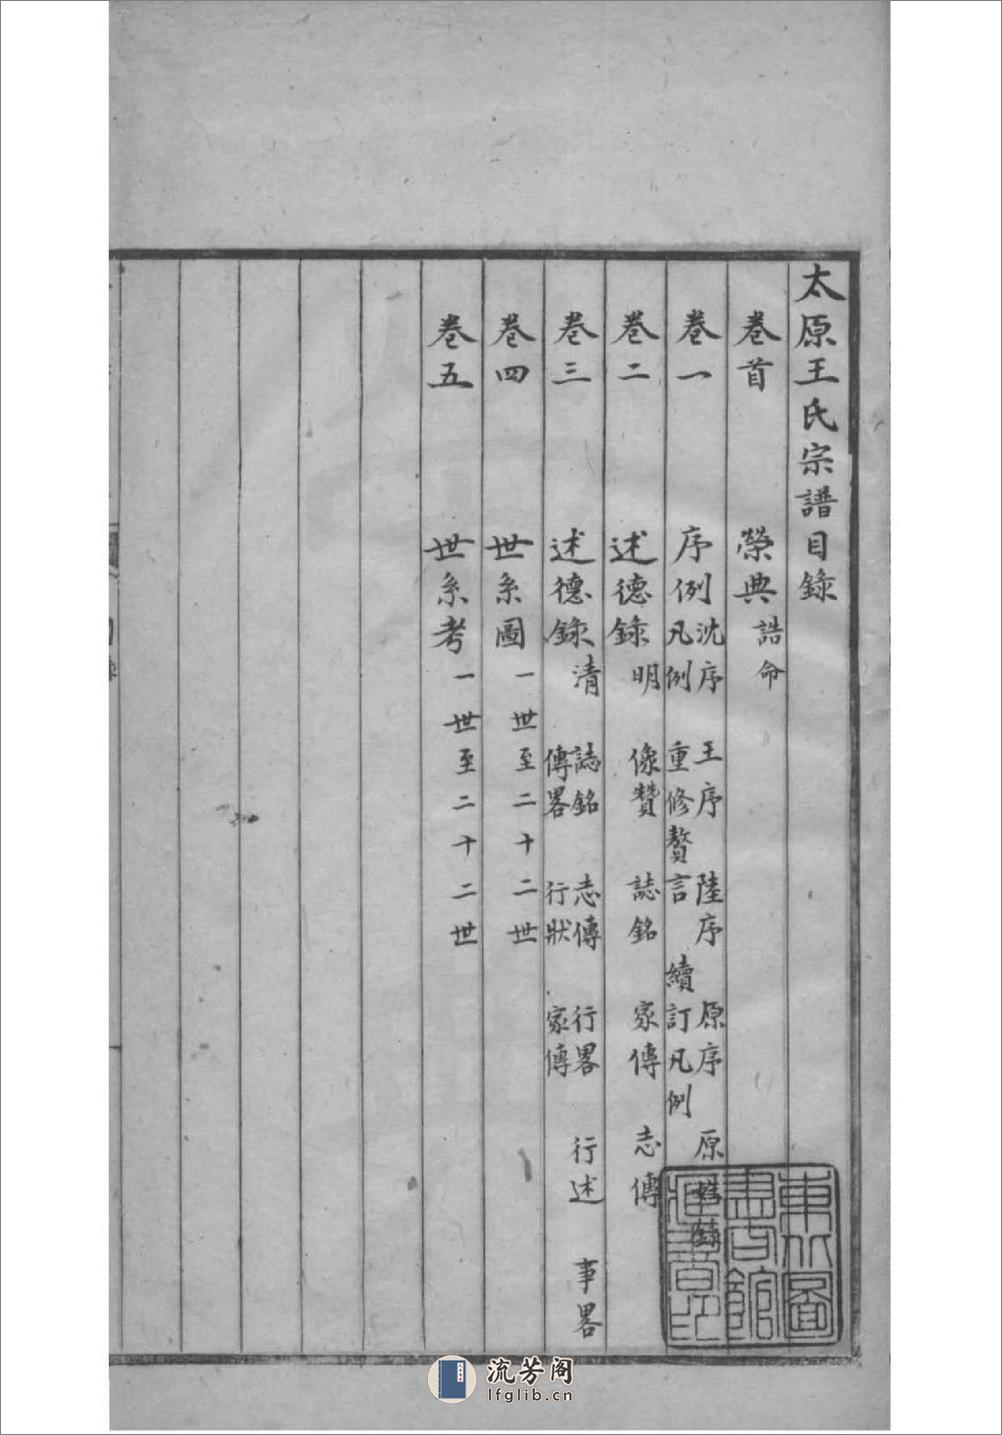 太原王氏宗譜目錄
卷首 榮典 誥命
卷一 序例 沈序 王序 陸序 原序 原
凡例 重修贅言 續訂凡例
卷二 述德錄 明 像贊 誌銘 家傳 志傳
卷三 述德錄 清 誌銘 志傳 行畧 行述 事畧
傳畧 行狀 家傳
卷四 世系圖 一世至二十二世
卷五 世系考 一世至二十二世
東北圖
書館
流芳阁
lfglib.cn